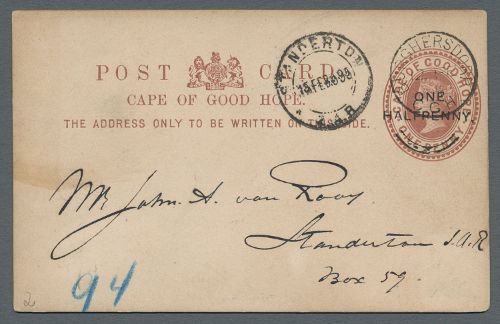 POST CARD.
CAPE OF GOOD HOPE.
THE ADDRESS ONLY TO BE WRITTEN ON THIS SIDE.
STANDERTON
Z.A.R.
CAPE OF GOOD HOPE
ONE
HALFPENNY
ONE PENNY
Mr John. A. van Rooy
Standerton Z.A.R
Box 59.
94
2